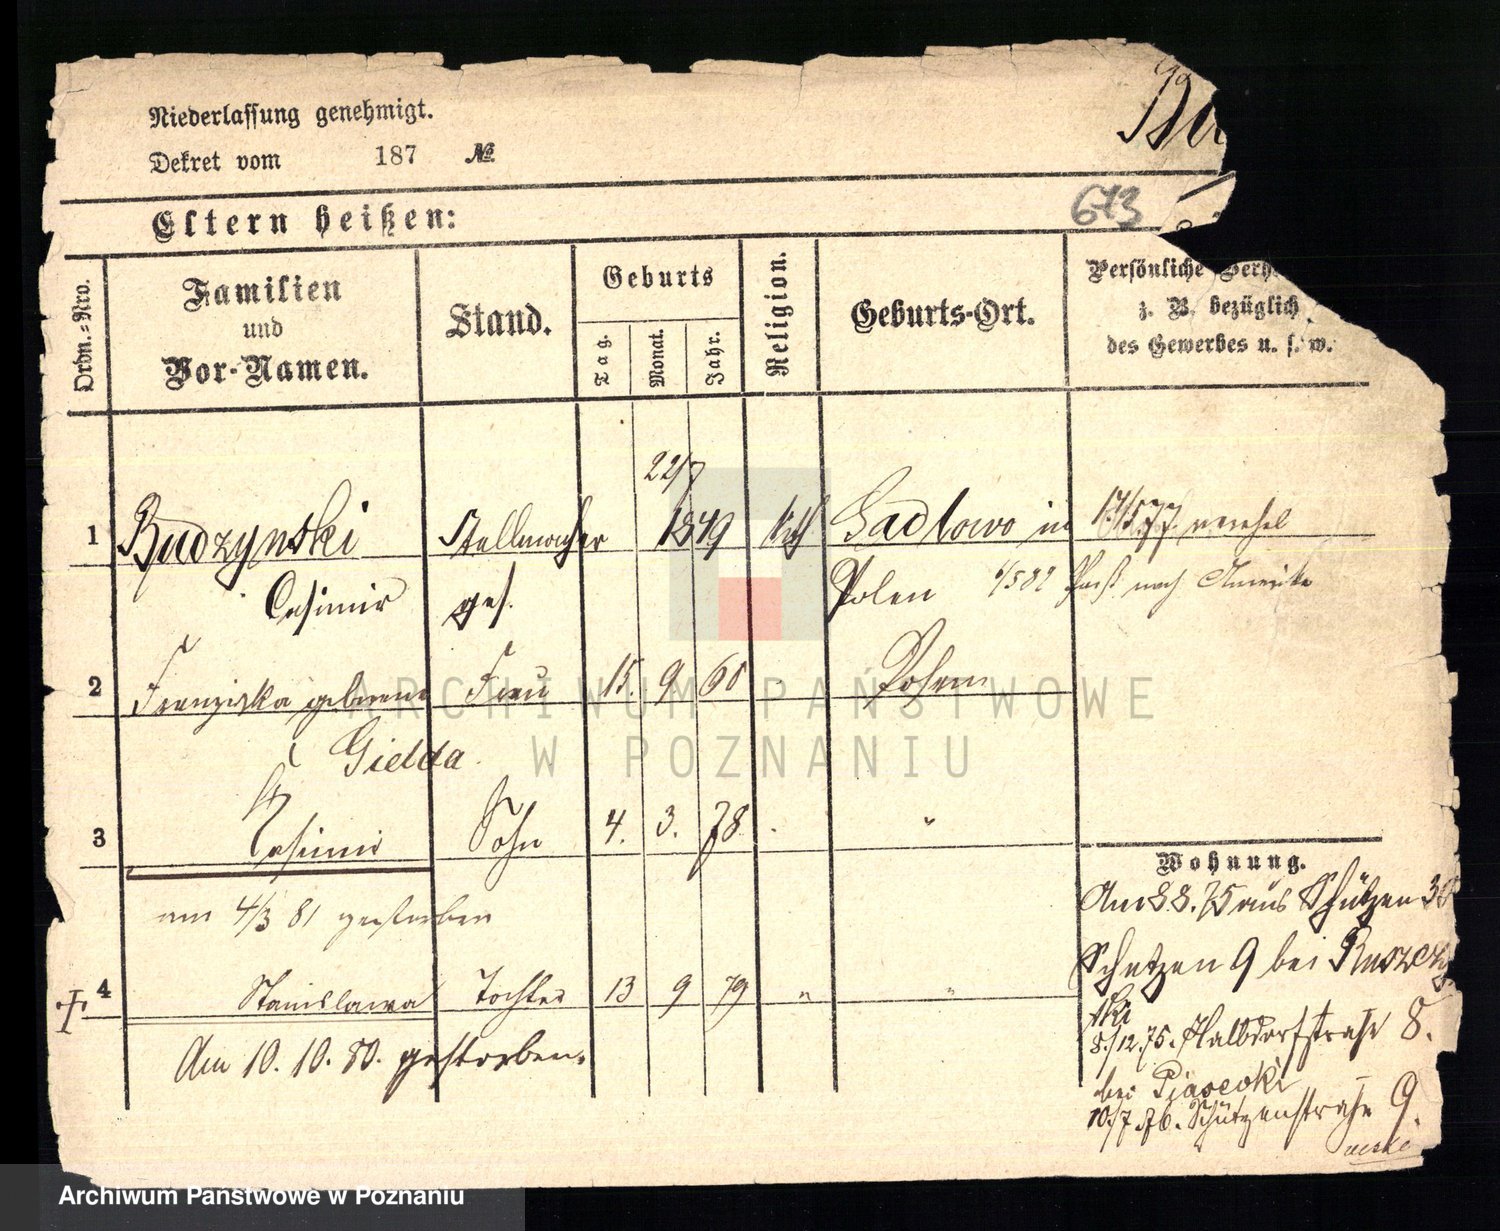 Niederlassung genehmigt.
Dekret vom 187 №
Bu
Eltern heißen:
673
Ordn.-Nro.
Familien
und
Vor-Namen.
Stand.
Geburts
Tag.
Monat.
Jahr.
Religion.
Geburts-Ort.
Persönliche Verh
z. B. bezüglich
des Gewerbes u. s. w.
22/7
1 Budzynski Stellmacher 1849 kth Sadlowo in 17/5 77
Casimir ges. Polen Paß nach Amerika
2 Franziska geborene Frau 15. 9 60 Posen
Gielda
3 Casimir Sohn 4. 3. 78. "
am 4/3 81 gestorben
4 Stanislawa Tochter 13 9 79 " "
Am 10. 10. 80. gestorben.
Wohnung.
Am 8.8.75 aus Schützen
Schützen 9 bei
ski
8./12.75. Halbdorfstraße 8.
bei Piasecki
10./7.76. Schützenstraße 9.
ARCHIWUM PAŃSTWOWE
W POZNANIU
Archiwum Państwowe w Poznaniu